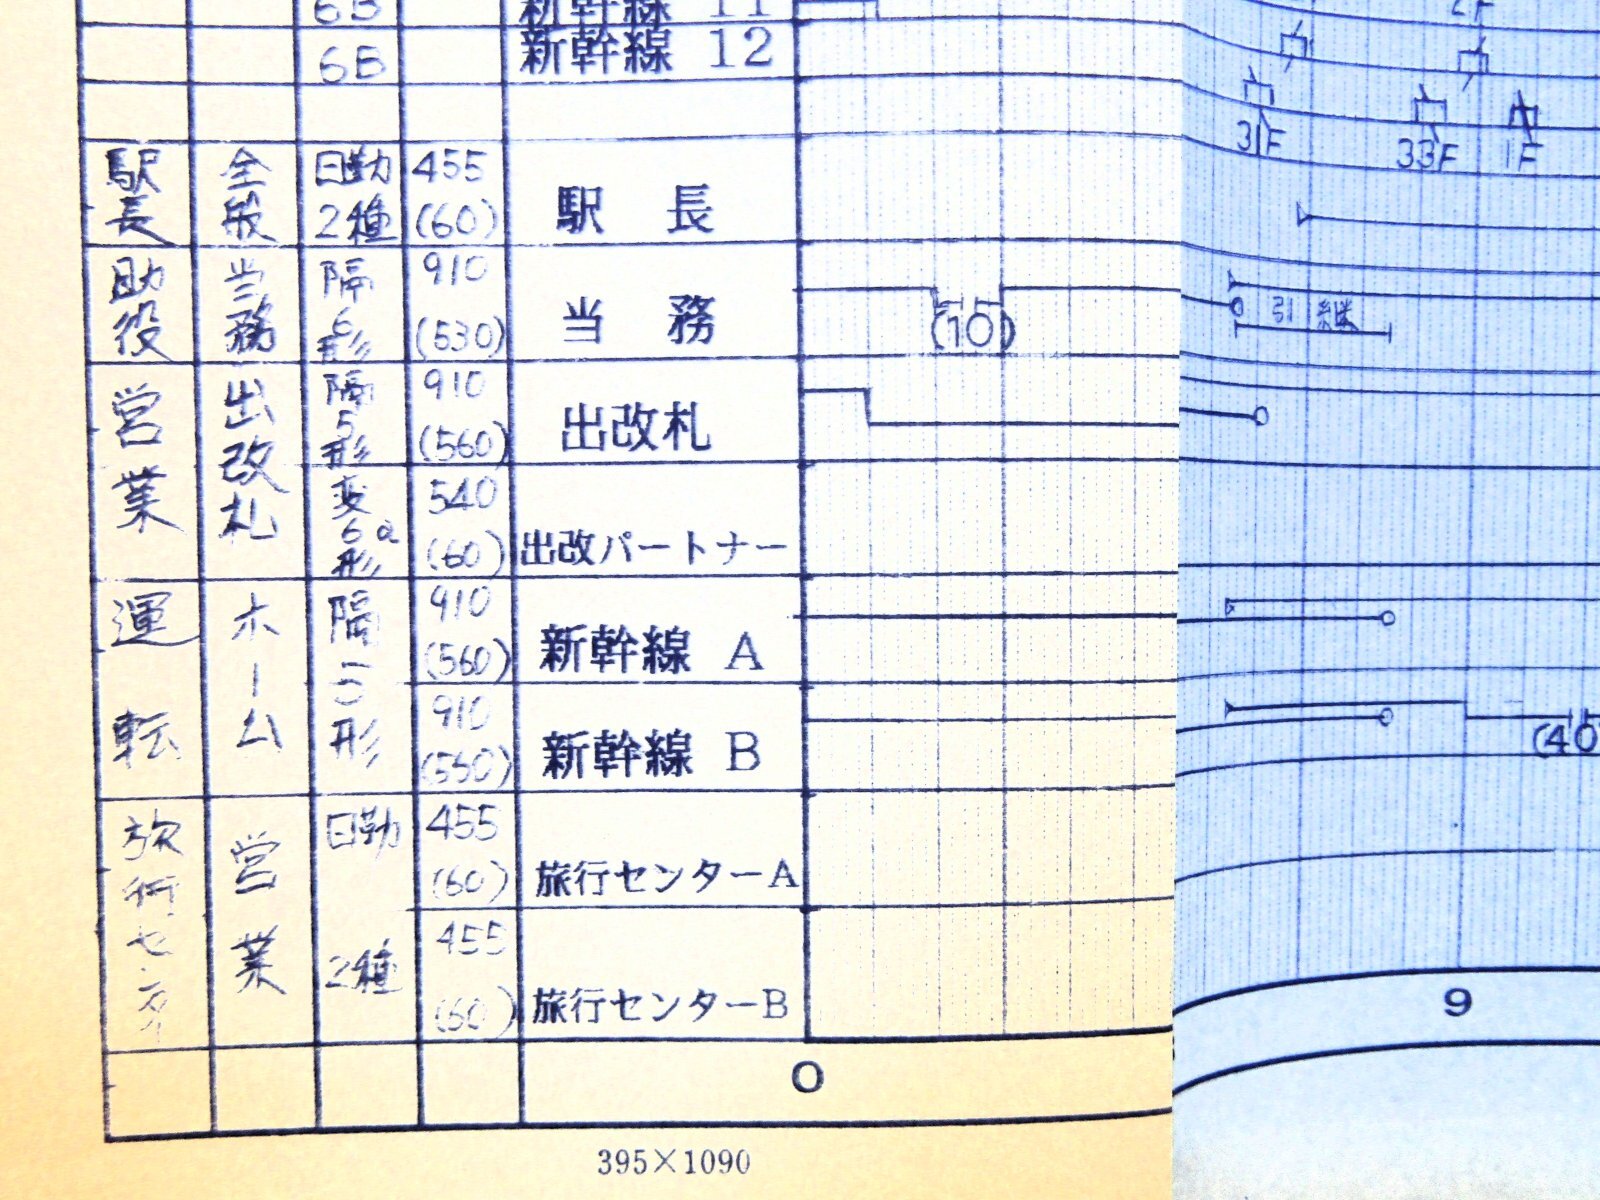 新幹線 11
6B
新幹線 12
2F
31F
33F
1F
駅長
全般
日勤
2種
455
(60)
駅 長
助役
当務
隔
6
形
910
(530)
当 務
(10)
引継
営業
出改札
隔
5
形
910
(560)
出改札
変
6a
形
540
(60)
出改パートナー
運転
ホーム
隔
15
形
910
(560)
新幹線 A
910
(550)
新幹線 B
(40
旅行センタ
営業
日勤
2種
455
(60)
旅行センターA
455
(60)
旅行センターB
0
9
395×1090